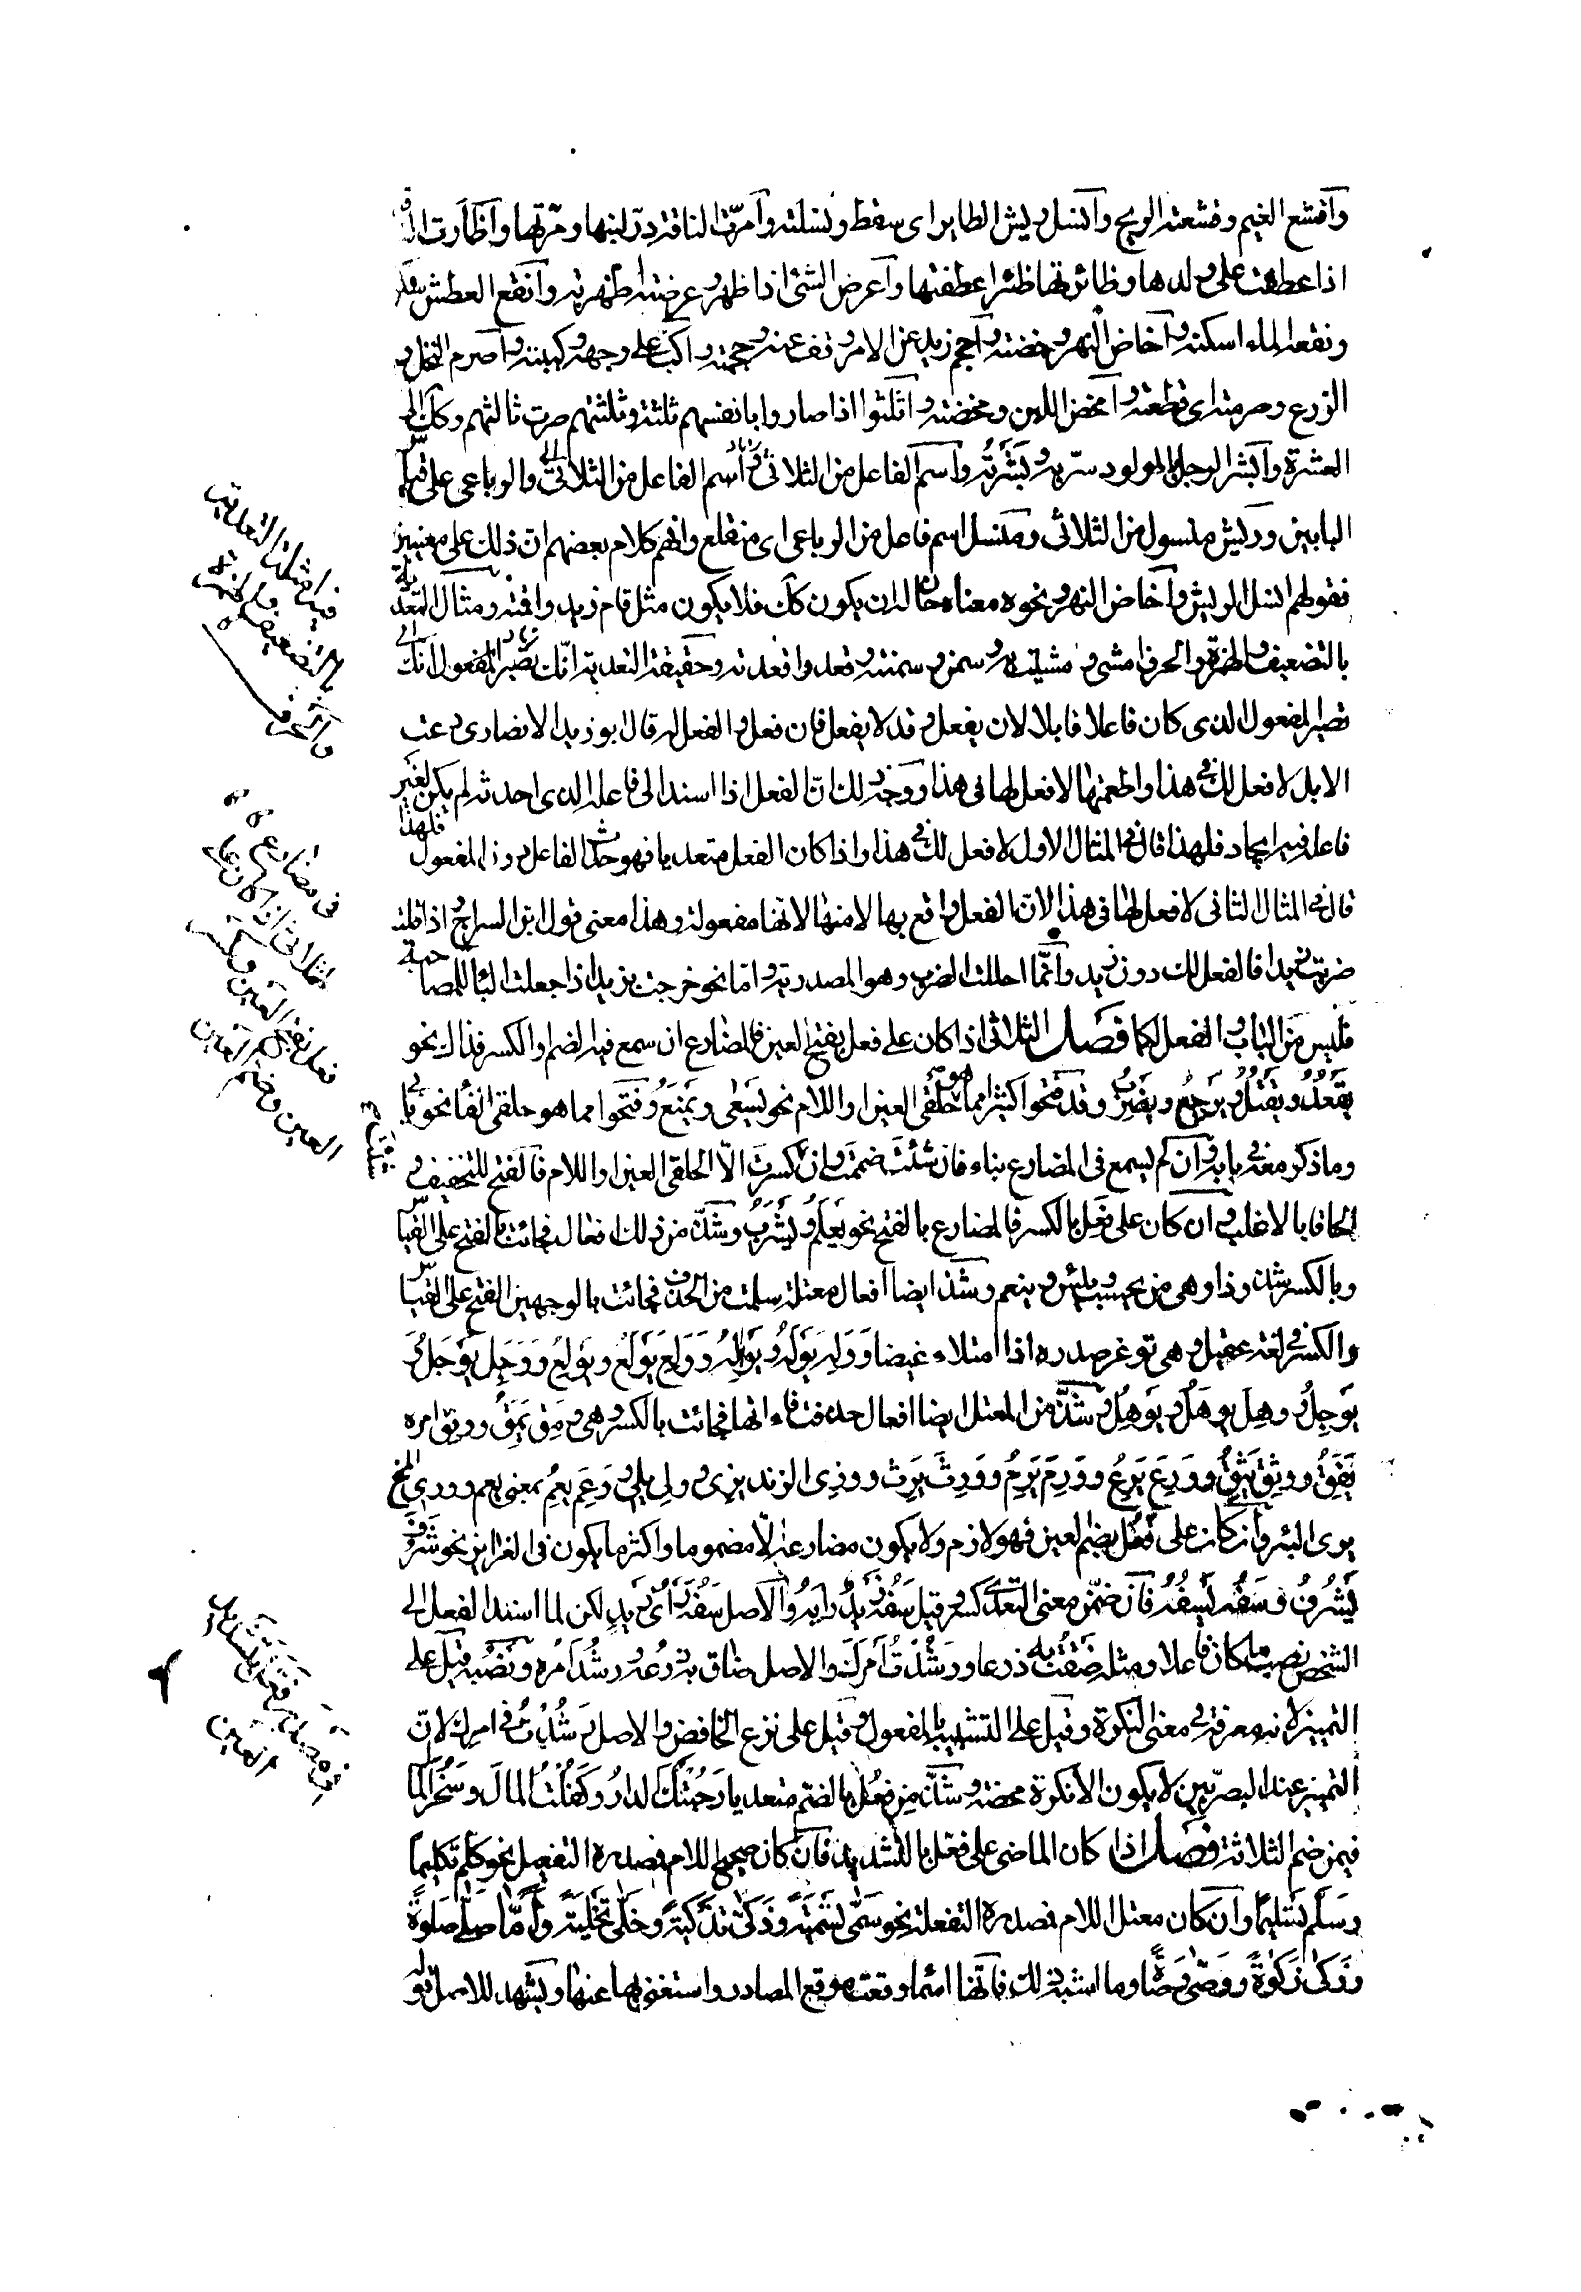 واقشع الغيم وقشعته الريح وانسل ريش الطاير اى سقط ونسلته وامرت الناقة در لبنها ومرتها واظأرت الناقة
اذا عطفت على ولدها وظائرتها ظئرا عطفتها واعرض الشئ اذا ظهر وعرضته اظهرته وانقع العطش سكن
ونقعه الماء اسكنه واخاض النهر وخضته واحجم زيد عن الامر وقف عنه وحجمته واكب على وجهه وكببته واصرم النخل و
الزرع وصرمته اى قطعته وامخض اللبن ومخضته واثلثوا اذا صاروا بانفسهم ثلثة وثلثتهم صرت ثالثهم وكذلك الى
العشرة وابشر الرجل بالمولود سر به وبشرته واسم الفاعل من الثلاثى والرباعى على قياس
البابين وريش منسول من الثلاثى ومنسل اسم فاعل من الرباعى اى منقلع وافهم كلام بعضهم ان ذلك على معنيين
فقولهم انسل الريش واخاض النهر ونحوه معناه حان له ان يكون كذلك فلا يكون مثل قام زيد واقمته ومثال التعدية
بالتضعيف والهمزة والحرف مشى ومشيت به وسمن وسمنته وقعد واقعدته وحقيقة التعدية انك تصير المفعول
تصير المفعول الذى كان فاعلا قابلا لان يفعل وقد لا يفعل فان فعل فالفعل له قال ابو زيد الانصارى رعت
الابل لا فعل لك فى هذا واطعمتها لا فعل لها فى هذا ووجه ذلك ان الفعل اذا اسند الى فاعله الذى احدثه لم يكن لغير
فاعله فيه ايجاد فلهذا قال فى المثال الاول لا فعل لك فى هذا واذا كان الفعل متعديا فهو حدث الفاعل دون المفعول فلهذا
قال فى المثال الثانى لا فعل لها فى هذا لان الفعل واقع بها لا منها لانها مفعولة وهذا معنى قول ابن السراج اذا قلت
ضربت زيدا فالفعل لك دون زيد وانما احللت الضرب وهو المصدر به واما نحو خرجت بزيد اذا جعلت الباء للمصاحبة
فليس من الباب والفعل لكما فصل الثلاثى اذا كان على فعل بفتح العين فالمضارع ان سمع فيه الضم والكسر فذاك نحو
يقعد ويقتل ويرجع ويضرب وقد فتحوا كثيرا مما هو حلقى العين او اللام نحو يسعى ويمنع وفتحوا مما هو حلقى الفاء نحو يأبى
وما ذكر معه فى بابه وان لم يسمع فى المضارع بناء فان شئت ضممت وان شئت كسرت الا الحلقى العين او اللام فالفتح للتخفيف و
الحاقا بالاغلب وان كان على فعل بالكسر فالمضارع بالفتح نحو يعلم ويشرب وشذ من ذلك افعال فجائت بالفتح على القياس
وبالكسر شذوذا وهى من يحسب ويئس وينعم وشذ ايضا افعال معتلة سلمت من الحذف فجائت بالوجهين الفتح على القياس
والكسر فى لغة عقيل وهى توغر صدره اذا امتلاء غيضا ووله يوله ويوله وولع يولع ويولع ووجل يوجل و
يوجل ووهل يوهل ويوهل وشذ من المعتل ايضا افعال حذفت فاءاتها فجائت بالكسر وهى ومق يمق ووفق امره
يفق ووثق يثق وورع يرع وورم يرم وورث يرث وورى الزند يرى وولى يلى ووعم يعم بمعنى يعم وورى المخ
يرى البئر وان كان على فعل بضم العين فهو لازم ولا يكون مضارعه الا مضموما واكثر ما يكون فى الغرايز نحو شرف
يشرف وسفه يسفه فان ضمن معنى التعدى كسر وقيل سفه زيد رايه والاصل سفه راى زيد لكن لما اسند الفعل الى
الشخص نصب ما كان فاعلا ومثله ضقت به ذرعا ورشدت امرك والاصل ضاق به ذرعه ورشد امره ونصبه قيل على
التمييز لانه معرفة فى معنى النكرة وقيل على التشبيه بالمفعول وقيل على نزع الخافض والاصل رشدت فى امرك لان
التمييز عند البصريين لا يكون الا نكرة محضة وشذ من فعل بالضم متعديا رحبتك الدار وكفلت المال وسخو المال
فيمن ضم الثلاثة فصل اذا كان الماضى على فعل بالتشديد فان كان صحيح اللام فمصدره التفعيل نحو كلم تكليما
وسلم تسليما وان كان معتل اللام فمصدره التفعلة نحو سمى تسمية وذكى تذكية وخلى تخلية واما صلى صلوة
وزكى زكوة ووصى وصاة وما اشبه ذلك فانها اسماء وقعت موقع المصادر واستغنى بها عنها ويشهد للاصل قوله
فيه امثلة التعدية
بالتضعيف والهمزة
والحرف
فى مضارع
الثلاثى اذا كان على
فعل بفتح العين وكسر
العين وضم العين
العين